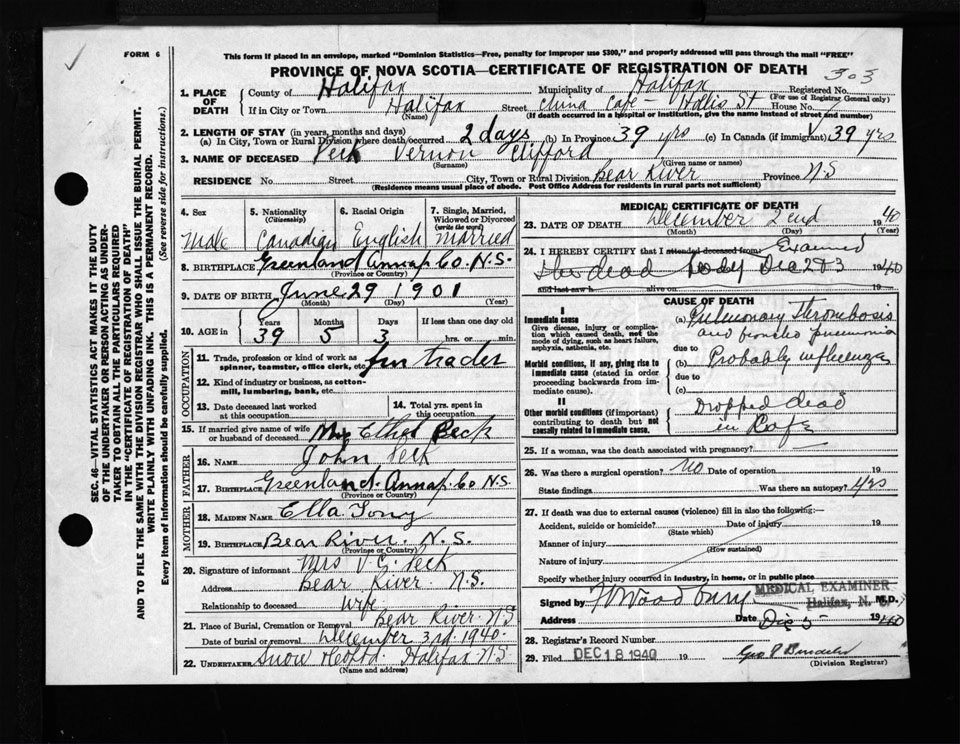 FORM 6
This form if placed in an envelope, marked "Dominion Statistics—Free, penalty for improper use $300," and properly addressed will pass through the mail "FREE"
PROVINCE OF NOVA SCOTIA—CERTIFICATE OF REGISTRATION OF DEATH 303
SEC. 46—VITAL STATISTICS ACT MAKES IT THE DUTY
OF THE UNDERTAKER OR PERSON ACTING AS UNDER-
TAKER TO OBTAIN ALL THE PARTICULARS REQUIRED
IN THE "CERTIFICATE OF REGISTRATION OF DEATH"
AND TO FILE THE SAME WITH THE DIVISION REGISTRAR WHO SHALL ISSUE THE BURIAL PERMIT.
WRITE PLAINLY WITH UNFADING INK. THIS IS A PERMANENT RECORD.
Every item of information should be carefully supplied. (See reverse side for instructions.)
1. PLACE OF DEATH
County of Halifax Municipality of Halifax Registered No.
(For use of Registrar General only)
If in City or Town Halifax Street China Cafe - Hollis St House No.
(Name) (If death occurred in a hospital or institution, give its name instead of street and number)
2. LENGTH OF STAY (in years, months and days)
(a) In City, Town or Rural Division where death occurred 2 days (b) In Province 39 yrs (c) In Canada (if immigrant) 39 yrs
3. NAME OF DECEASED Peck Vernon Clifford
(Surname) (Given name or names)
RESIDENCE No. Street City, Town or Rural Division Bear River Province N.S
(Residence means usual place of abode. Post Office Address for residents in rural parts not sufficient)
4. Sex
Male
5. Nationality
(Citizenship)
Canadian
6. Racial Origin
English
7. Single, Married, Widowed or Divorced
(write the word)
Married
8. BIRTHPLACE Greenland Annap. Co. N.S.
(Province or Country)
9. DATE OF BIRTH June 29 1901
(Month) (Day) (Year)
10. AGE in
Years Months Days If less than one day old
39 5 3 hrs. or min.
OCCUPATION
11. Trade, profession or kind of work as
spinner, teamster, office clerk, etc. fur trader
12. Kind of industry or business, as cotton-
mill, lumbering, bank, etc.
13. Date deceased last worked
at this occupation
14. Total yrs. spent in
this occupation
15. If married give name of wife
or husband of deceased Mrs Ethel Peck
FATHER
16. NAME John Peck
17. BIRTHPLACE Greenland. Annap. Co N.S.
(Province or Country)
MOTHER
18. MAIDEN NAME Ella
19. BIRTHPLACE Bear River. N.S.
(Province or Country)
20. Signature of informant Mrs V.C. Peck
Address Bear River. N.S.
Relationship to deceased wife
21. Place of Burial, Cremation or Removal Bear River N.S
Date of burial or removal December 3rd. 1940.
22. UNDERTAKER Snow Halifax N.S
(Name and address)
MEDICAL CERTIFICATE OF DEATH
23. DATE OF DEATH December 2end 1940
(Month) (Day)
24. I HEREBY CERTIFY that I attended deceased from Examined
the dead body Dec 2&3 1940
and last saw h alive on
CAUSE OF DEATH
I
Immediate cause
Give disease, injury or complica-
tion which caused death, not the
mode of dying, such as heart failure,
asphyxia, asthenia, etc.
(a) Pulmonary Thrombosis
and broncho pneumonia
due to
Morbid conditions, if any, giving rise to
immediate cause (stated in order
proceeding backwards from im-
mediate cause).
(b) Probably influenza
due to
(c)
II
Other morbid conditions (if important)
contributing to death but not
causally related to immediate cause.
Dropped dead
in Cafe
25. If a woman, was the death associated with pregnancy?
26. Was there a surgical operation? No Date of operation 19
State findings Was there an autopsy? Yes
27. If death was due to external causes (violence) fill in also the following:
Accident, suicide or homicide? Date of injury 19
(State which)
Manner of injury
(How sustained)
Nature of injury
Specify whether injury occurred in industry, in home, or in public place
MEDICAL EXAMINER
Halifax, N. S.
Signed by Woodbury M.D.
Address Date Dec 5 1940
28. Registrar's Record Number
29. Filed DEC 18 1940 19
(Division Registrar)